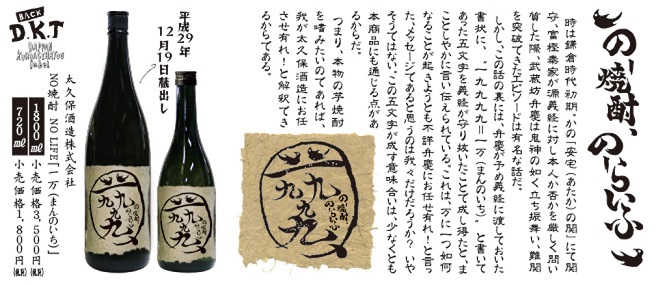 のー焼酎、のーらいふ
時は鎌倉時代初期、かの「安宅(あたか)の関」にて関
守、富樫泰家が源義経に対し本人か否かを厳しく問い
質した際、武蔵坊弁慶は鬼神の如く立ち振舞い、難関
を突破できたエピソードは有名な話だ。
しかし、この話の裏には、弁慶が予め義経に渡しておいた
書状に、「九九九九=一万(まんのいち)」と書いて
あった五文字を義経が守り抜いたことで成し得たと、ま
ことしやかに言い伝えられている。これは、万に一つ如何
なることが起きようとも不詳弁慶にお任せ有れ!と言っ
た、メッセージであると思うのは我々だけだろうか?いや
そうではない。この五文字が成す意味合いは、少なくとも
本商品にも通じる点があ
るからだ。
つまり、本物の芋焼酎
を嗜みたいのであれば、
我が太久保酒造にお任
せ有れ!と解釈でき
るからである。
の焼酎、
のらいふ
九九九九
平成29年
12月19日蔵出し
九九九九
九九九九
太久保酒造株式会社
NO焼酎 NO LIFE「一万(まんのいち)」
1800ml 小売価格3,500円(税別)
720ml 小売価格1,800円(税別)
BACK
D.K.T